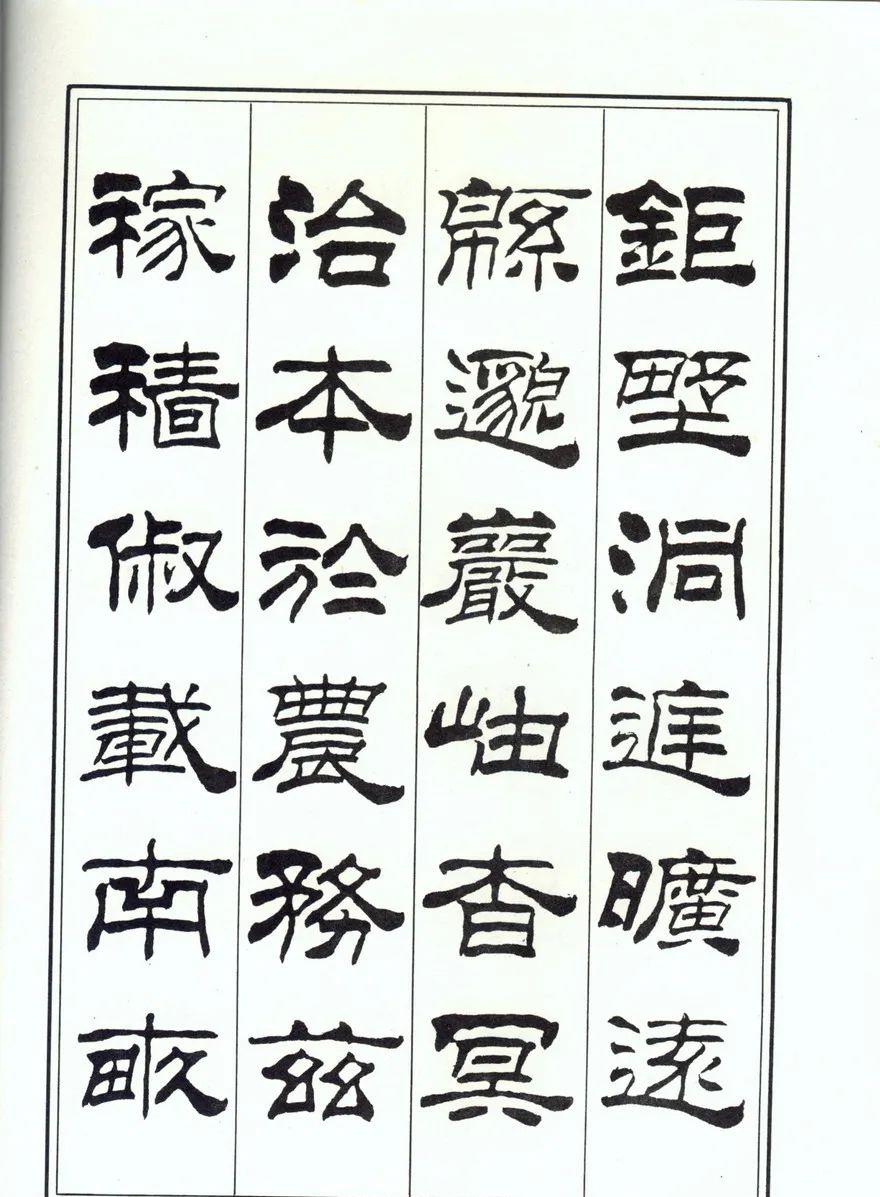 鉅野洞庭曠遠
緜邈巖岫杳冥
治本於農務茲
稼穡俶載南畝